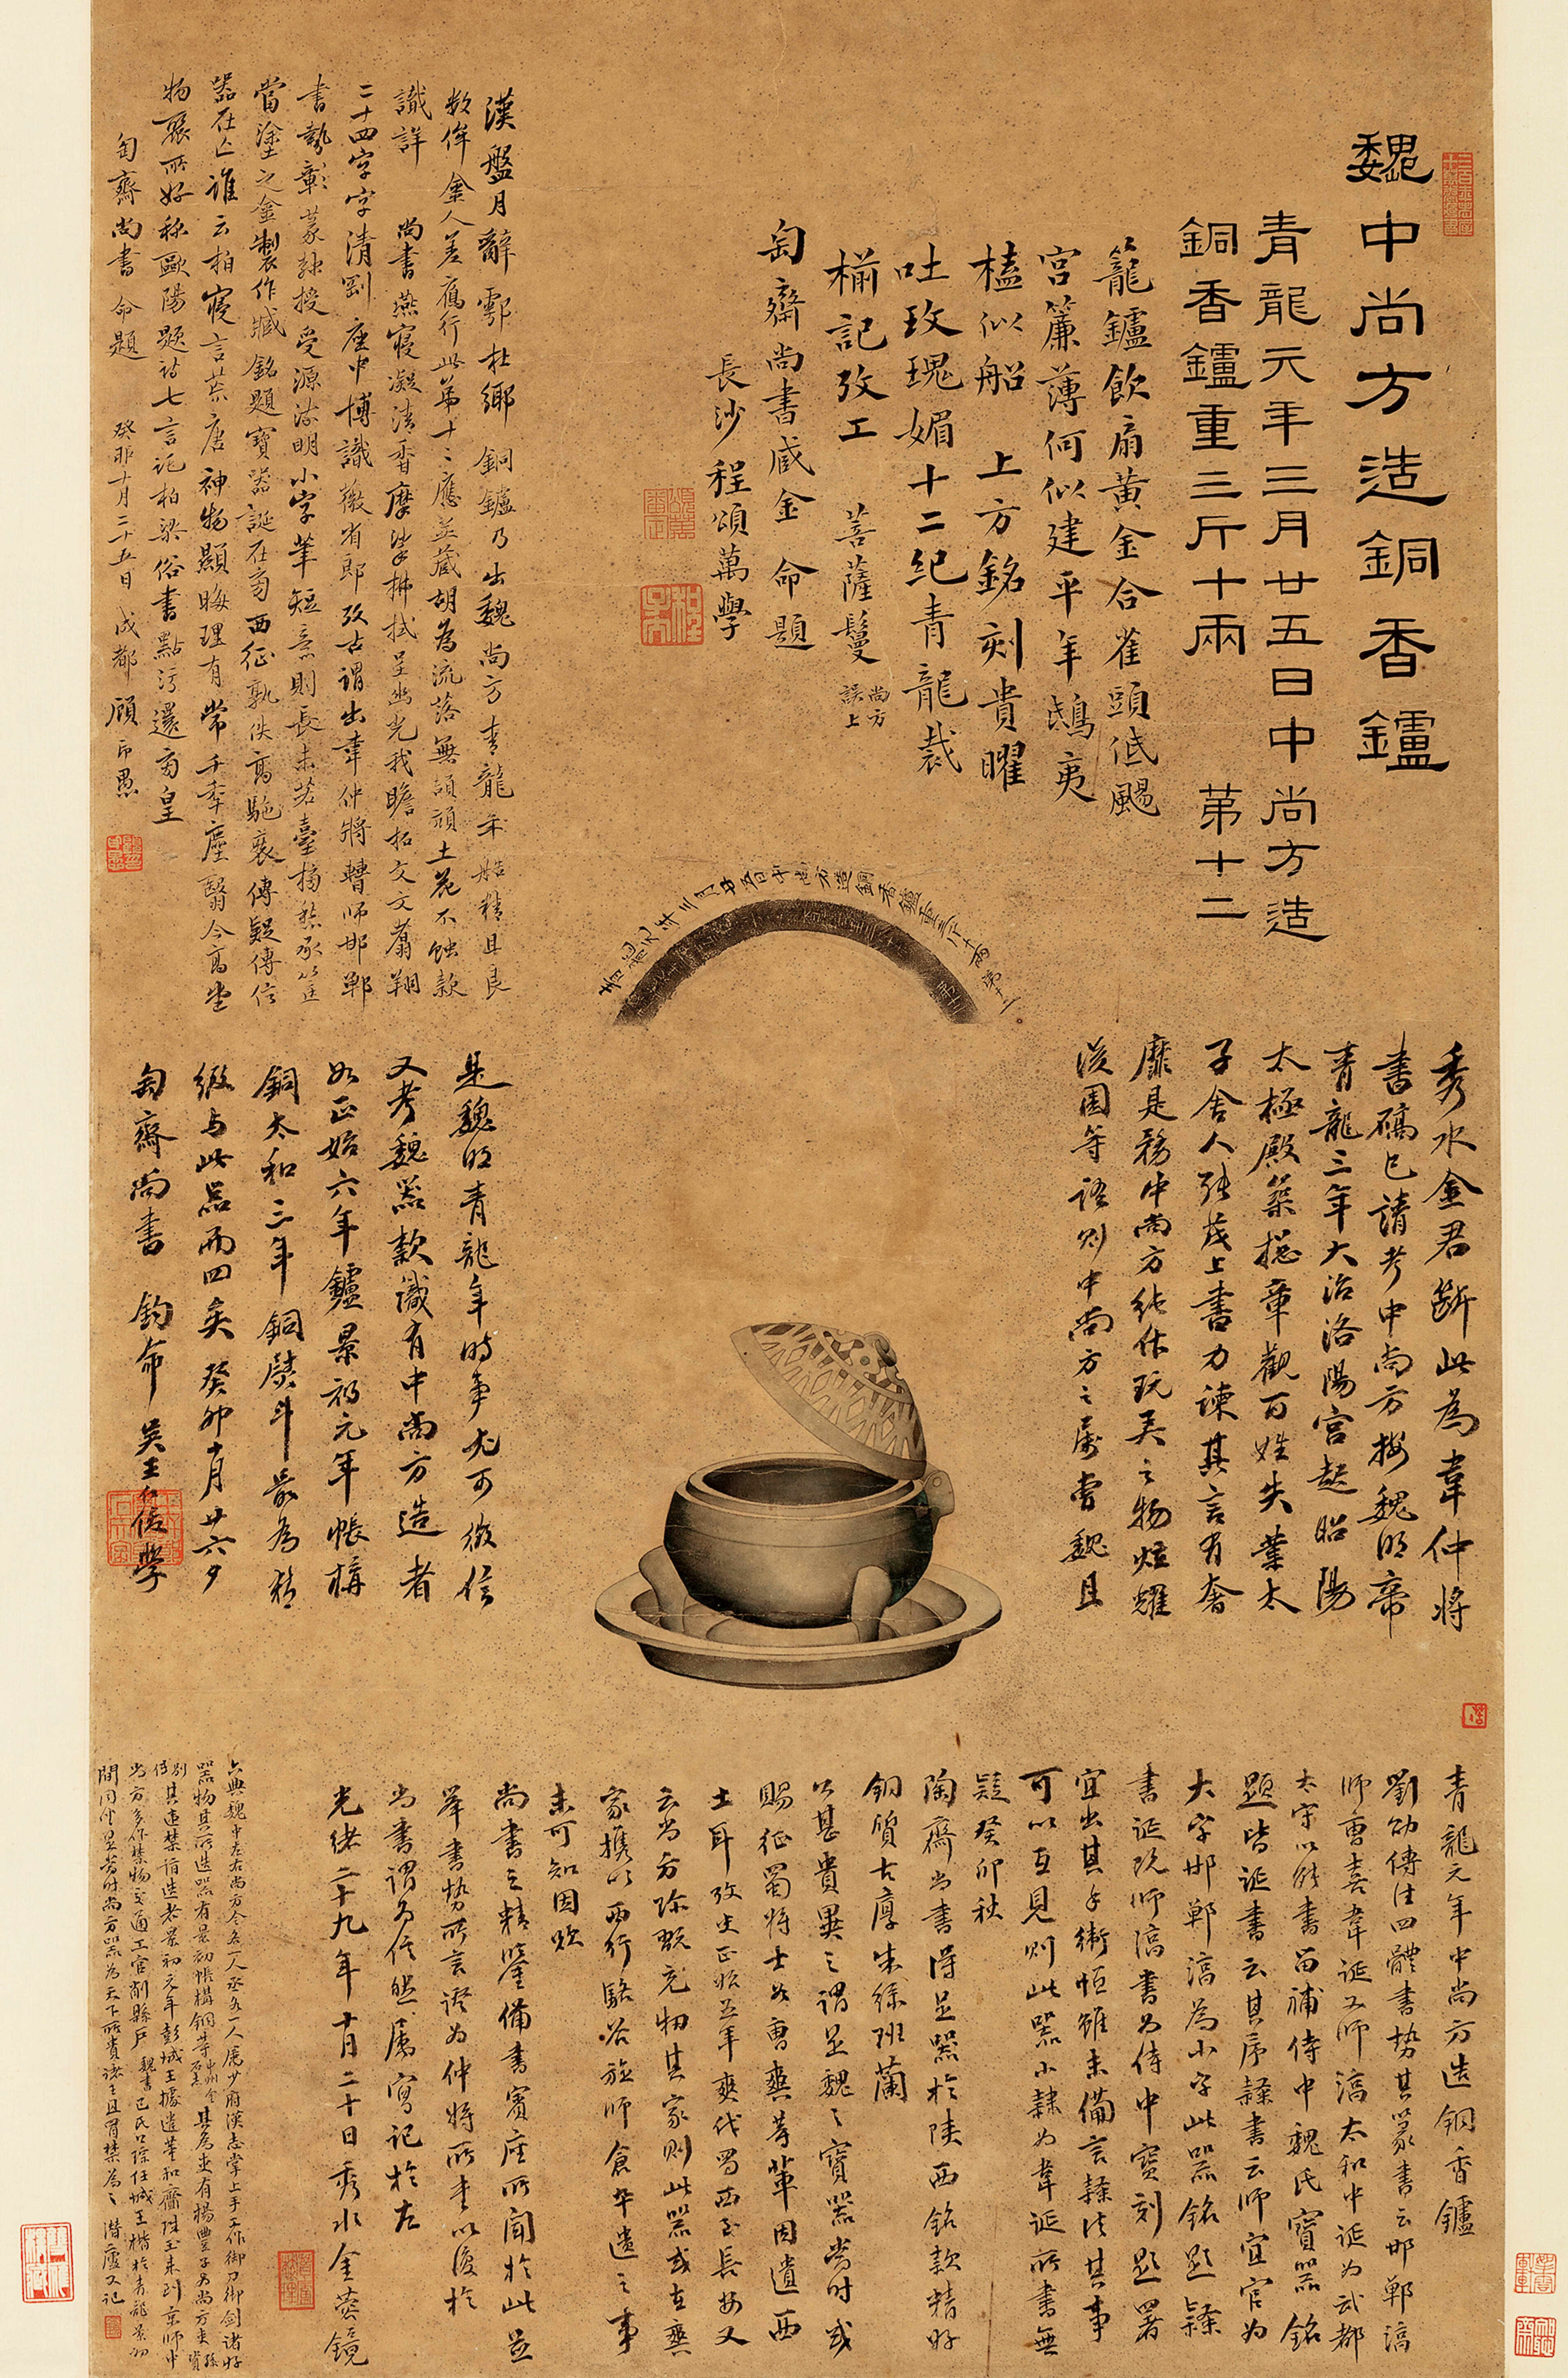 魏中尚方造銅香鑪
青龍元年三月廿五日中尚方造
銅香鑪重三斤十兩 第十二
籠鑪飲扇黃金合雀頭低颺
宮簾薄何似建平年鴟夷
榼似船 上方銘刻貴曜
吐玫瑰媚十二紀青龍裁
槏記攷工 菩薩鬘
尚方
誤上
匋齋尚書咸金 命題
長沙程頌萬學
漢盤月辭鄠杜鄉 銅鑪乃出魏尚方青龍年 精且良
數侔金人差雁行此第十二應並藏胡為流落無 土花不蝕款
識詳 尚書燕寢凝清香摩挲拂拭呈幽光我瞻拓文文翥翔
二十四字字清剛座中博識徵省郎攷古謂出韋仲將轉師邯鄲
書勢彰篆隸授受源流明小字筆短意則長
當塗之金製作臧銘題寶器誕在旁西征孰佚 傳疑傳信
器在亡誰云柏寢言荒唐神物顯晦理有常千年塵翳今高堂
物聚所好秭歐陽題詩七言詫柏梁俗書點污還
匋齋尚書 命題 癸卯十月二十五日成都顧印愚
青龍元年三月廿五日中尚方造銅香鑪重三斤十兩第十二
秀水金君斷此為韋仲將
書碻已請考中尚方按魏明帝
青龍三年大治洛陽宮起昭陽
太極殿築總章觀百姓失業太
子舍人張茂上書力諫其言有奢
靡是務中尚方純作玩弄之物炫耀
後園等語則中尚方之屬曹魏且
是魏明青龍年時事尤可徵信
又考魏器款識有中尚方造者
如正始六年鑪景初元年帳構
銅太和三年銅熨斗最為精
緻与此器而四矣癸卯十月廿六夕
匋齋尚書 鈞命 吳王仁俊學
青龍元年中尚方造銅香鑪
劉劭傳注四體書勢其篆書云邯鄲淳
師曹喜韋誕又師淳太和中誕為武都
太守以能書留補侍中魏氏寶器銘
題皆誕書云其序隸書云師宜官為
大字邯鄲淳為小字此器銘題隸
書誕既師淳書為侍中寶刻題署
宜出其手衛恒雖未備言隸法其事
可以互見則此器小隸為韋誕所書無
疑癸卯秋
陶齋尚書得是器於陝西銘款精好
銅質古厚朱綠班蘭
以甚貴異之謂是魏之寶器當時或
賜征蜀將士如曹爽等輩因遺西
土耳攷史正始五年爽伐蜀西至長安又
云尚方珍玩充牣其家則此器或在爽
家攜以西行駱谷旋師倉卒遺之事
未可知因貽
尚書之精鑒備書賓座所聞於此並
举書勢所言證為仲將所書以復於
尚書謂為信然屬寫記於右
光緒二十九年十月二十日秀水金蓉鏡
六典魏中左右尚方令各一人丞各一人屬少府漢志掌上手工作御刀御劍諸好
器物其所造器有景初帳構銅等